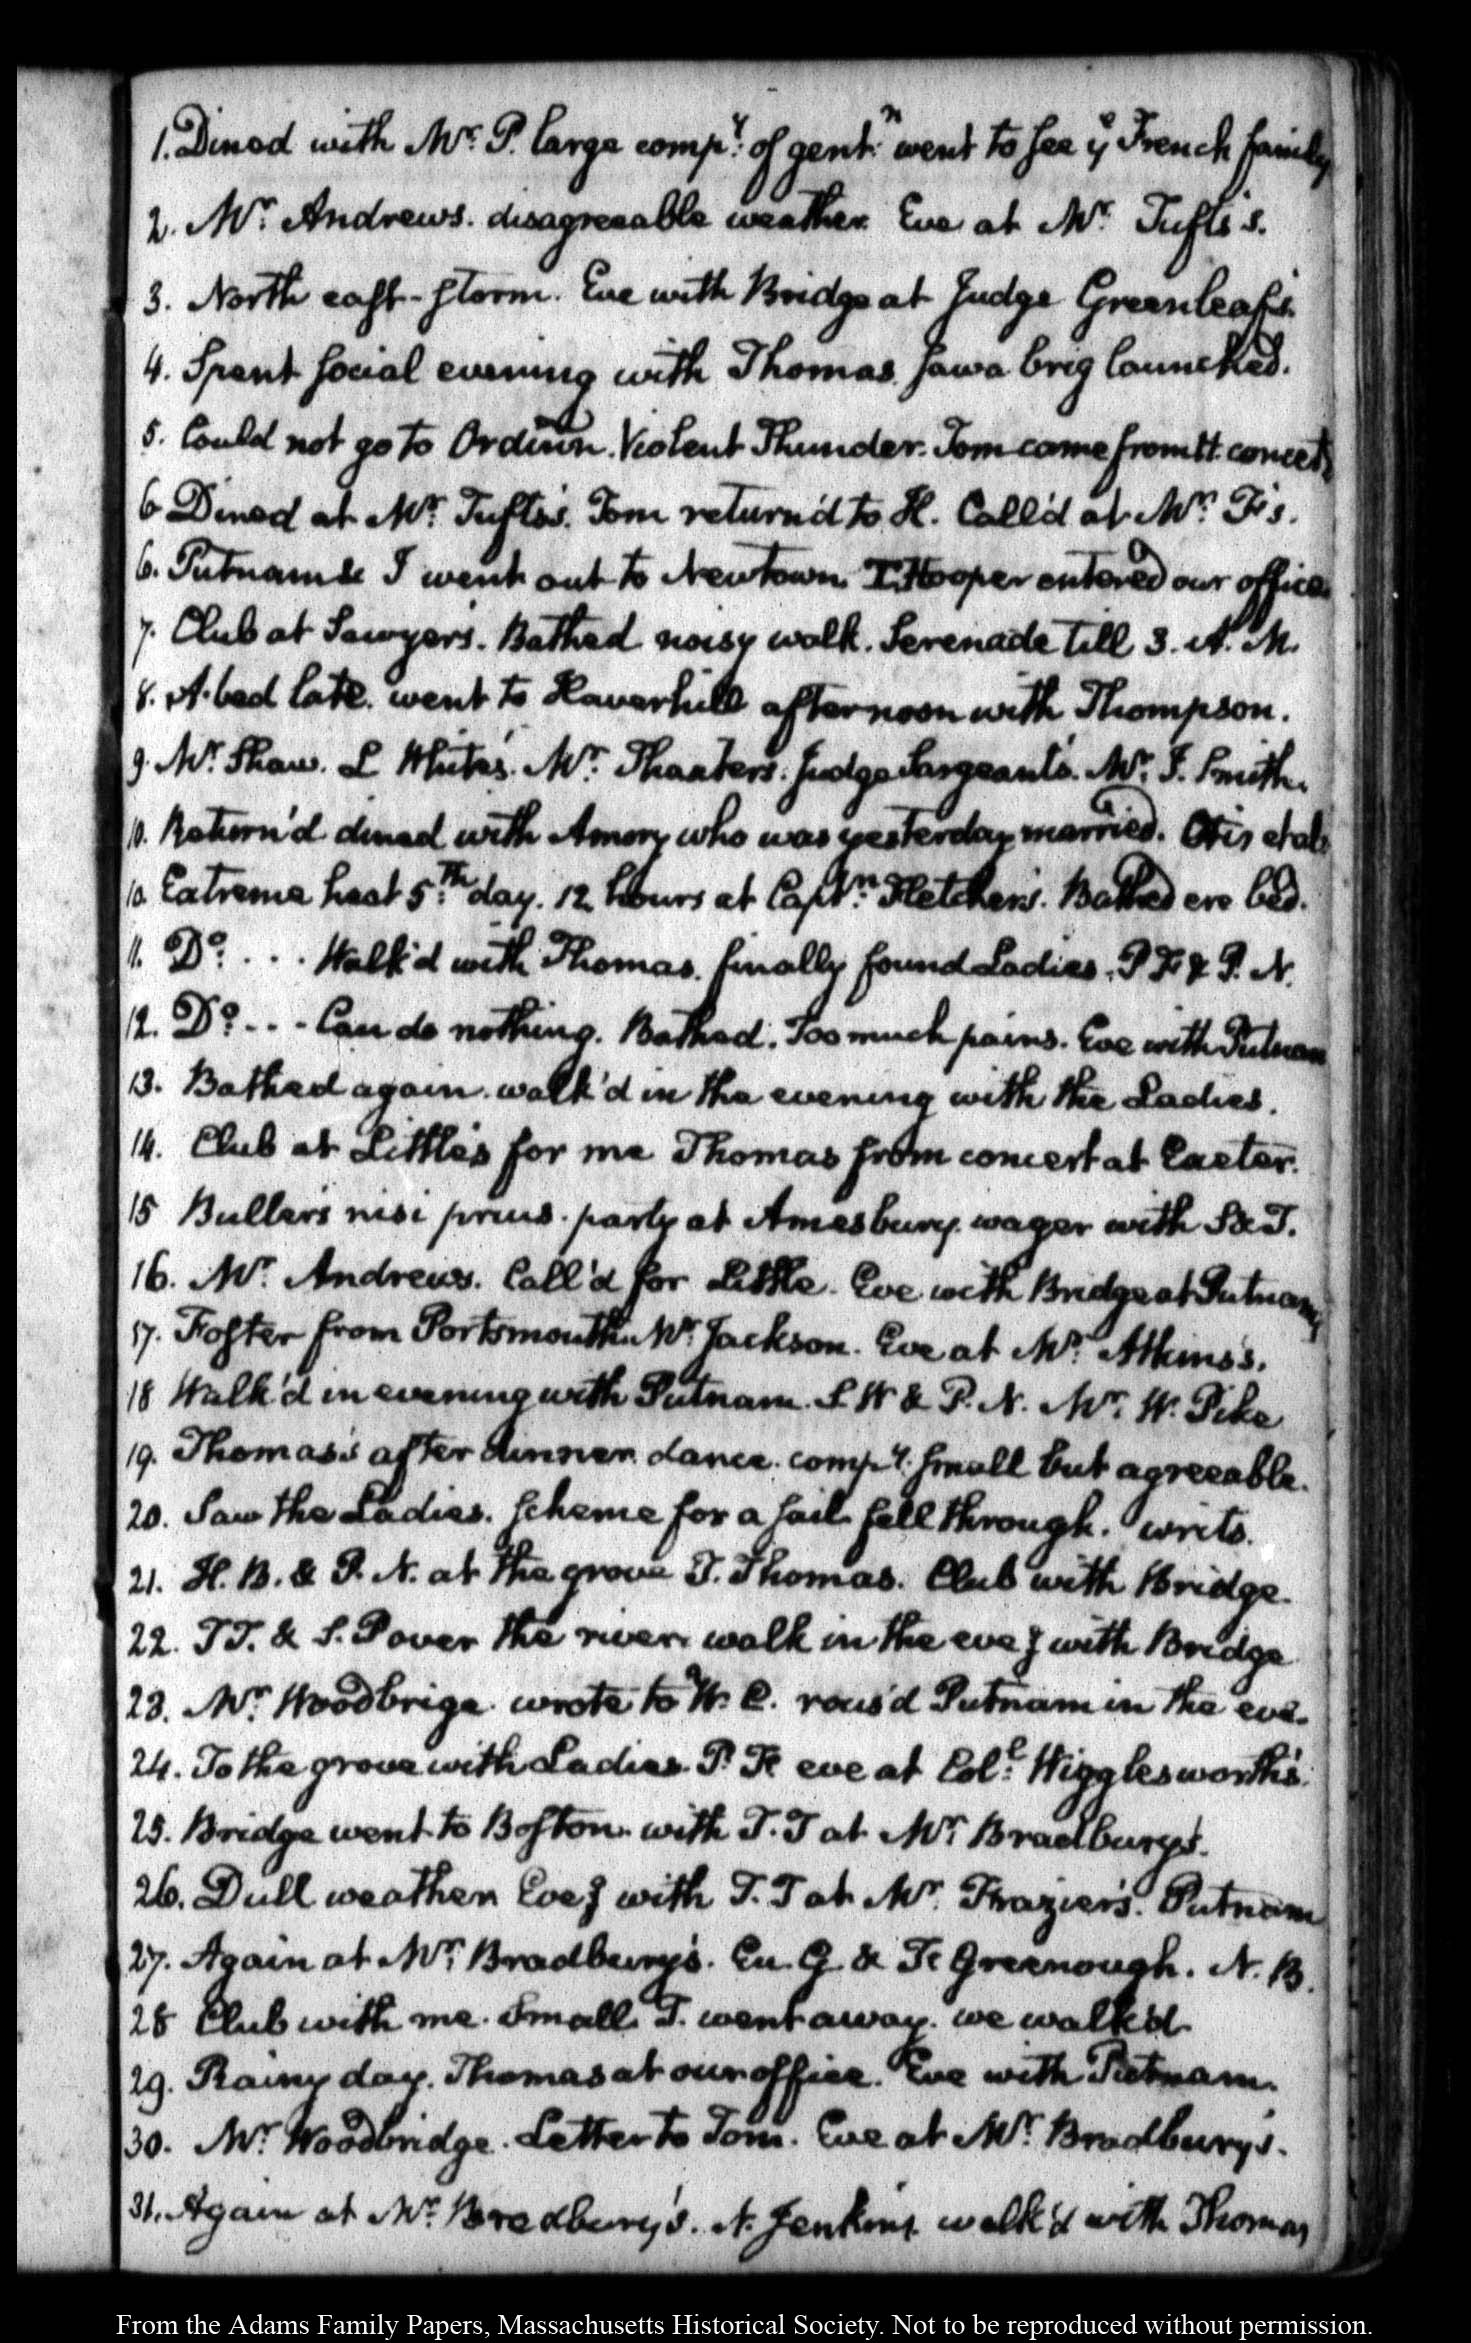 1. Dined with Mr. P. large compy. of gentn. went to see ye French family
2. Mr. Andrews. disagreeable weather. Eve at Mr. Tufts's.
3. North east-storm. Eve with Bridge at Judge Greenleaf's.
4. Spent social evening with Thomas. saw a brig launched.
5. Could not go to Ordinn. Violent Thunder. Tom came from H. concert
6 Dined at Mr. Tufts's. Tom return'd to H. Call'd at Mr. F's.
6. Putnam & I went out to Newtown. Hooper entered our office.
7. Club at Sawyer's. Bathed noisy walk. Serenade till 3. A. M.
8. A-bed late. went to Haverhill afternoon with Thompson.
9. Mr. Shaw. L White's. Mr. Thaxter's. Judge Sargeant's. Mr. J. Smith.
10. Return'd dined with Amory who was yesterday married. Otis et al:
10. Extreme heat 5.th day. 12 hours at Captn. Fletcher's. Bathed ere bed.
11. Do. . . . Walk'd with Thomas. finally found Ladies. P F & P. N.
12. Do. . . - Can do nothing. Bathed. Too much pains. Eve with Putnam
13. Bathed again. walk'd in the evening with the Ladies.
14. Club at Little's for me Thomas from concert at Exeter.
15 Buller's nisi prius. party at Amesbury. wager with S & T.
16. Mr. Andrews. Call'd for Little. Eve with Bridge at Putnam's
17. Foster from Portsmouth. Mr. Jackson. Eve at Mr. Atkins's.
18 Walk'd in evening with Putnam. S. W & P. N. Mr. W. Pike
19. Thomas's after dinner. dance. compy. small but agreeable.
20. Saw the Ladies. scheme for a sail fell through. writs.
21. H. B. & P. N. at the grove T. Thomas. Club with Bridge.
22. T T. & S. P over the river. walk in the eveg with Bridge
23. Mr. Woodbrige. wrote to W. C. rous'd Putnam in the eve.
24. To the grove with Ladies. P. F. eve at Coll. Wigglesworth's.
25. Bridge went to Boston. with T. T at Mr. Bradbury's.
26. Dull weather. Eveg with T. T at Mr. Frazier's. Putnam
27. Again at Mr. Bradbury's. G & F Greenough. N. B.
28 Club with me. Small. T. went away. we walk'd.
29. Rainy day. Thomas at our office. Eve with Putnam.
30. Mr. Woodbridge. Letter to Tom. Eve at Mr. Bradbury's.
31. Again at Mr. Bradbury's. N. Jenkins walk'd with Thomas
From the Adams Family Papers, Massachusetts Historical Society. Not to be reproduced without permission.